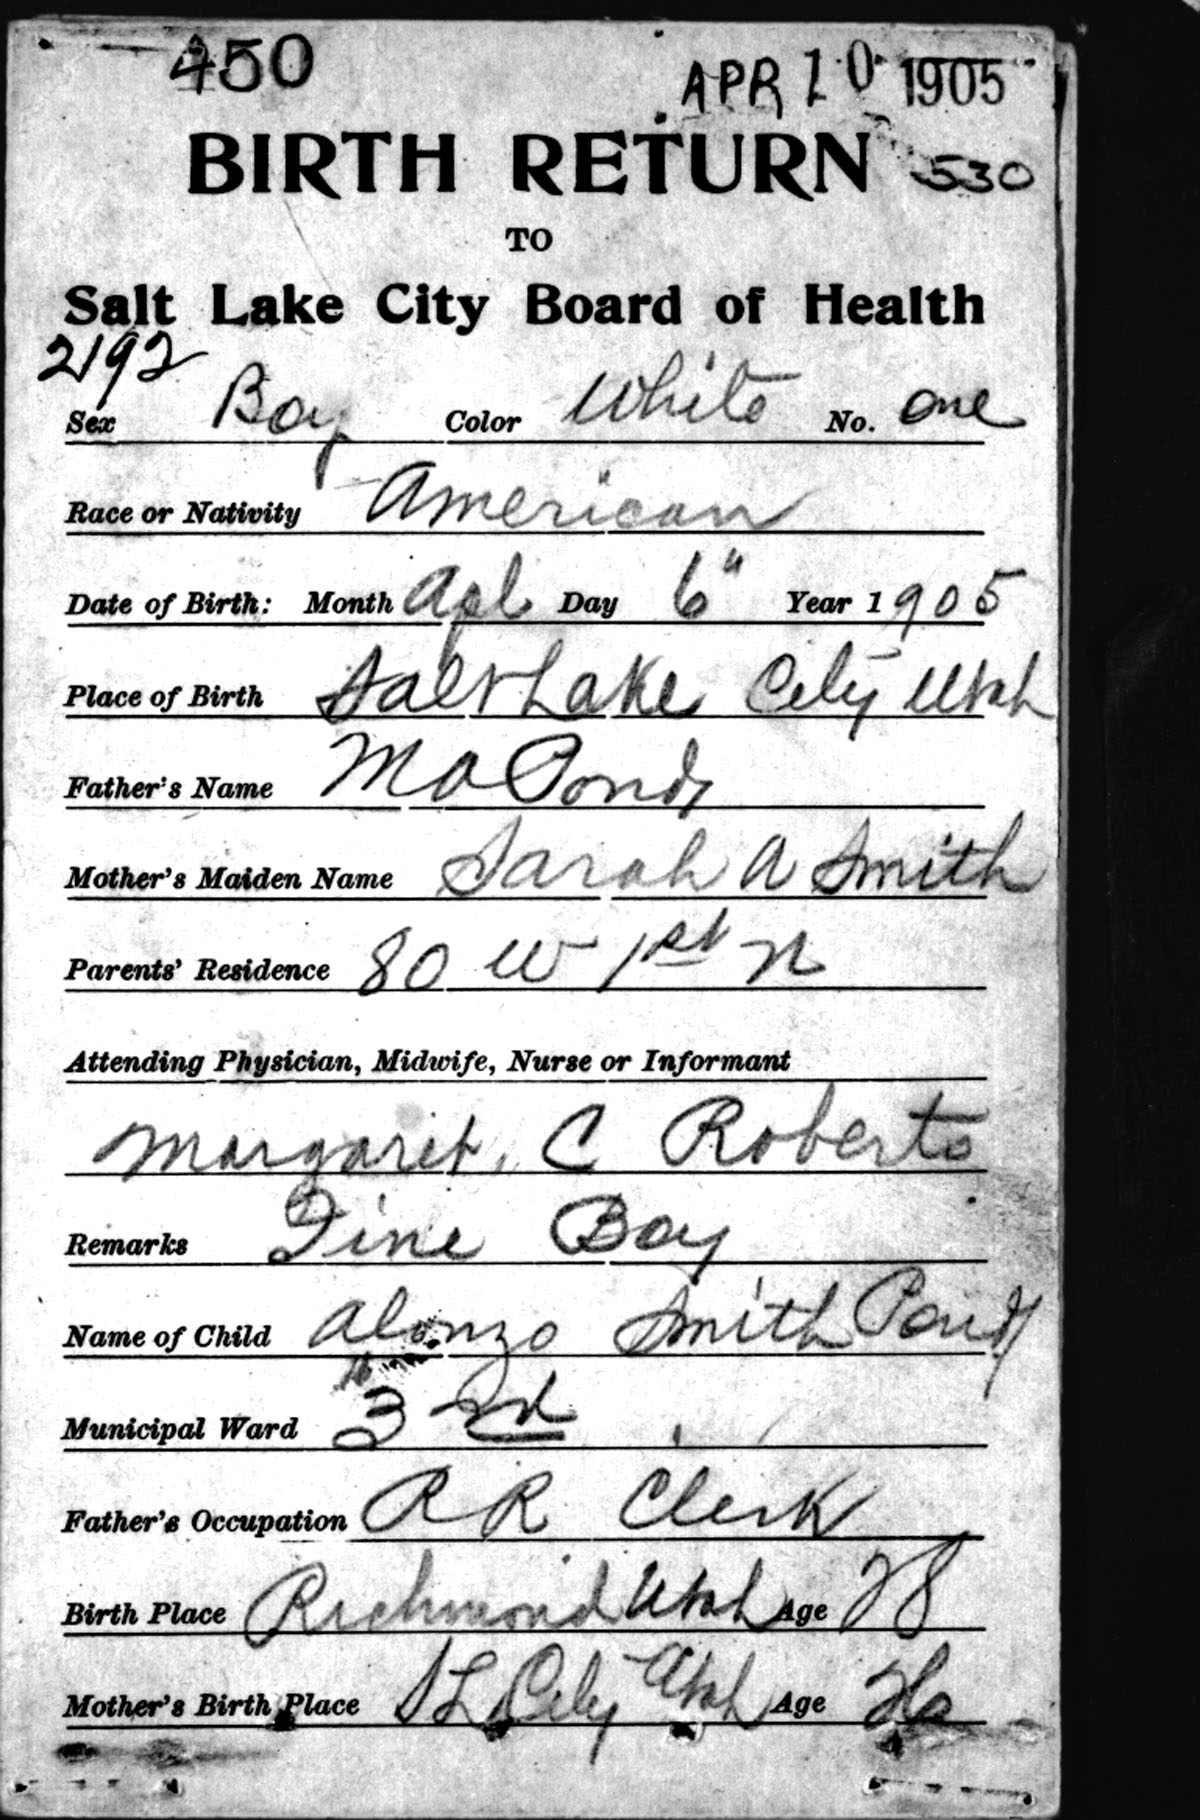 450
APR 10 1905
BIRTH RETURN 530
TO
Salt Lake City Board of Health
2192
Sex Boy Color White No. one
Race or Nativity American
Date of Birth: Month Apl Day 6" Year 1905
Place of Birth Salt Lake City Utah
Father's Name M A Pond
Mother's Maiden Name Sarah A Smith
Parents' Residence 80 W 1st N
Attending Physician, Midwife, Nurse or Informant
Margaret, C Roberts
Remarks Fine Boy
Name of Child Alonzo Smith Pond
Municipal Ward 3rd
Father's Occupation R R Clerk
Birth Place Richmond Utah Age 28
Mother's Birth Place S L City Utah Age